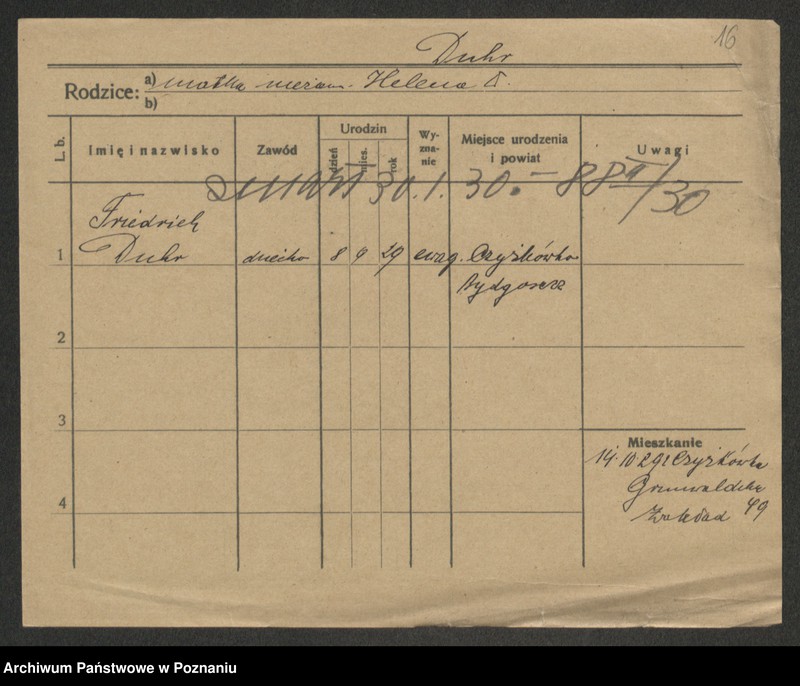 16
Duhr
Rodzice: a) matka niezam. Helena D.
b)
L. b.
Imię i nazwisko
Zawód
Urodzin
dzień
mies.
rok
Wy-
zna-
nie
Miejsce urodzenia
i powiat
Uwagi
zmarł 30.1.30.- 88 II/30
Friedrich
1 Duhr dziecko 8 9 29 ewag. Czyżkówko
Bydgoszcz
2
3
4
Mieszkanie
14.10.29 Czyżkówko
Grunwaldzka
Zakład 49
Archiwum Państwowe w Poznaniu